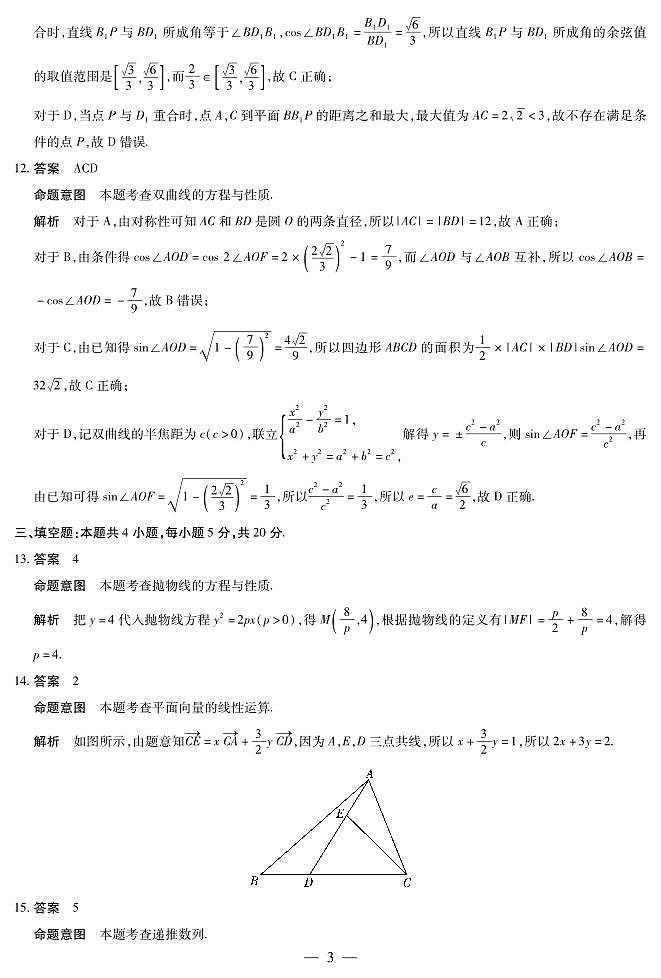 合时,直线 B₁P 与 BD₁ 所成角等于∠BD₁B₁,cos∠BD₁B₁ = B₁D₁/BD₁ = √6/3,所以直线 B₁P 与 BD₁ 所成角的余弦值
的取值范围是[√3/3, √6/3],而 2/3 ∈ [√3/3, √6/3],故 C 正确;
对于 D,当点 P 与 D₁ 重合时,点 A,C 到平面 BB₁P 的距离之和最大,最大值为 AC = 2√2 < 3,故不存在满足条
件的点 P,故 D 错误.
12. 答案 ACD
命题意图 本题考查双曲线的方程与性质.
解析 对于 A,由对称性可知 AC 和 BD 是圆 O 的两条直径,所以|AC| = |BD| = 12,故 A 正确;
对于 B,由条件得 cos∠AOD = cos 2∠AOF = 2 × (2√2/3)² - 1 = 7/9,而∠AOD 与∠AOB 互补,所以 cos∠AOB =
-cos∠AOD = -7/9,故 B 错误;
对于 C,由已知得 sin∠AOD = √(1 - (7/9)²) = 4√2/9,所以四边形 ABCD 的面积为 1/2 × |AC| × |BD| sin∠AOD =
32√2,故 C 正确;
对于 D,记双曲线的半焦距为 c(c > 0),联立{x²/a² - y²/b² = 1, x² + y² = a² + b² = c², 解得 y = ±(c² - a²)/c,则 sin∠AOF = (c² - a²)/c²,再
由已知可得 sin∠AOF = √(1 - (2√2/3)²) = 1/3,所以(c² - a²)/c² = 1/3,所以 e = c/a = √6/2,故 D 正确.
三、填空题:本题共 4 小题,每小题 5 分,共 20 分.
13. 答案 4
命题意图 本题考查抛物线的方程与性质.
解析 把 y = 4 代入抛物线方程 y² = 2px(p > 0),得 M(8/p, 4),根据抛物线的定义有|MF| = p/2 + 8/p = 4,解得
p = 4.
14. 答案 2
命题意图 本题考查平面向量的线性运算.
解析 如图所示,由题意知 $\overrightarrow{CE}$ = x $\overrightarrow{CA}$ + 3/2 y $\overrightarrow{CD}$,因为 A,E,D 三点共线,所以 x + 3/2 y = 1,所以 2x + 3y = 2.
A
E
B D C
15. 答案 5
命题意图 本题考查递推数列.
— 3 —